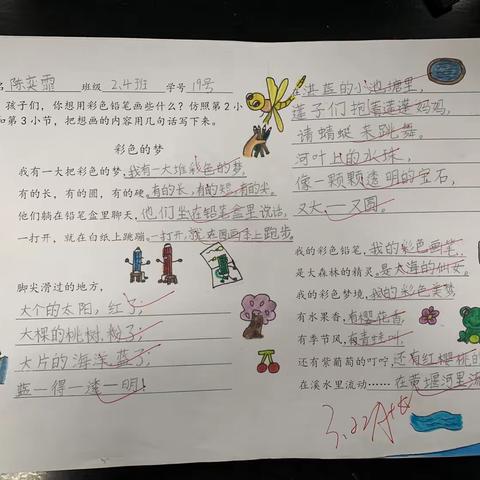 名 陈奕霏 班级 2.4班 学号 19号
孩子们，你想用彩色铅笔画些什么？仿照第2小
和第3小节，把想画的内容用几句话写下来。
彩色的梦
我有一大把彩色的梦，我有一大堆彩色的梦，
有的长，有的圆，有的硬。有的长，有的短，有的尖。
他们躺在铅笔盒里聊天，他们坐在铅笔盒里说话，
一打开，就在白纸上跳蹦。一打开，就在图画本上跑步。
脚尖滑过的地方，
大个的太阳，红了；
大棵的桃树，粉了；
大片的海洋，蓝了；
蓝——得——透——明！
在湛蓝的小池塘里，
莲子们抱着莲蓬妈妈，
请蜻蜓来跳舞。
河叶上的水珠，
像一颗颗透明的宝石，
又大，一又圆。
我的彩色铅笔，我的彩色画笔，
是大森林的精灵。是大海的仙女。
我的彩色梦境，我的彩色美梦，
有水果香，有樱花香，
有季节风，有青蛙叶，
还有紫葡萄的叮咛，还有红樱桃的
在溪水里流动…… 在黄堰河里流